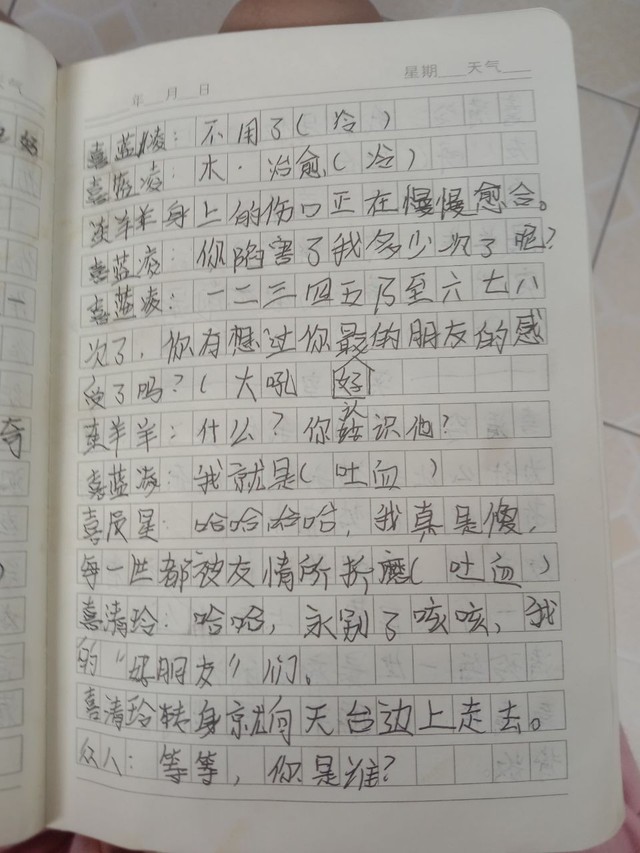 年 月 日 星期 天气
天气
喜蓝凌：不用了（冷）
喜蓝凌：木·治愈（冷）
美羊羊身上的伤口正在慢慢愈合。
喜蓝凌：你陷害了我多少次了呢？
喜蓝凌：一二三四五乃至六七八
次了，你有想过你最好的朋友的感
受了吗？（大吼）
美羊羊：什么？你认识他？
喜蓝凌：我就是（吐血）
喜辰星：哈哈哈哈，我真是傻，
每一世都被友情所折磨（吐血）
喜清玲：哈哈，永别了咳咳，我
的“好朋友”们。
喜清玲转身就向天台边上走去。
众人：等等，你是谁？